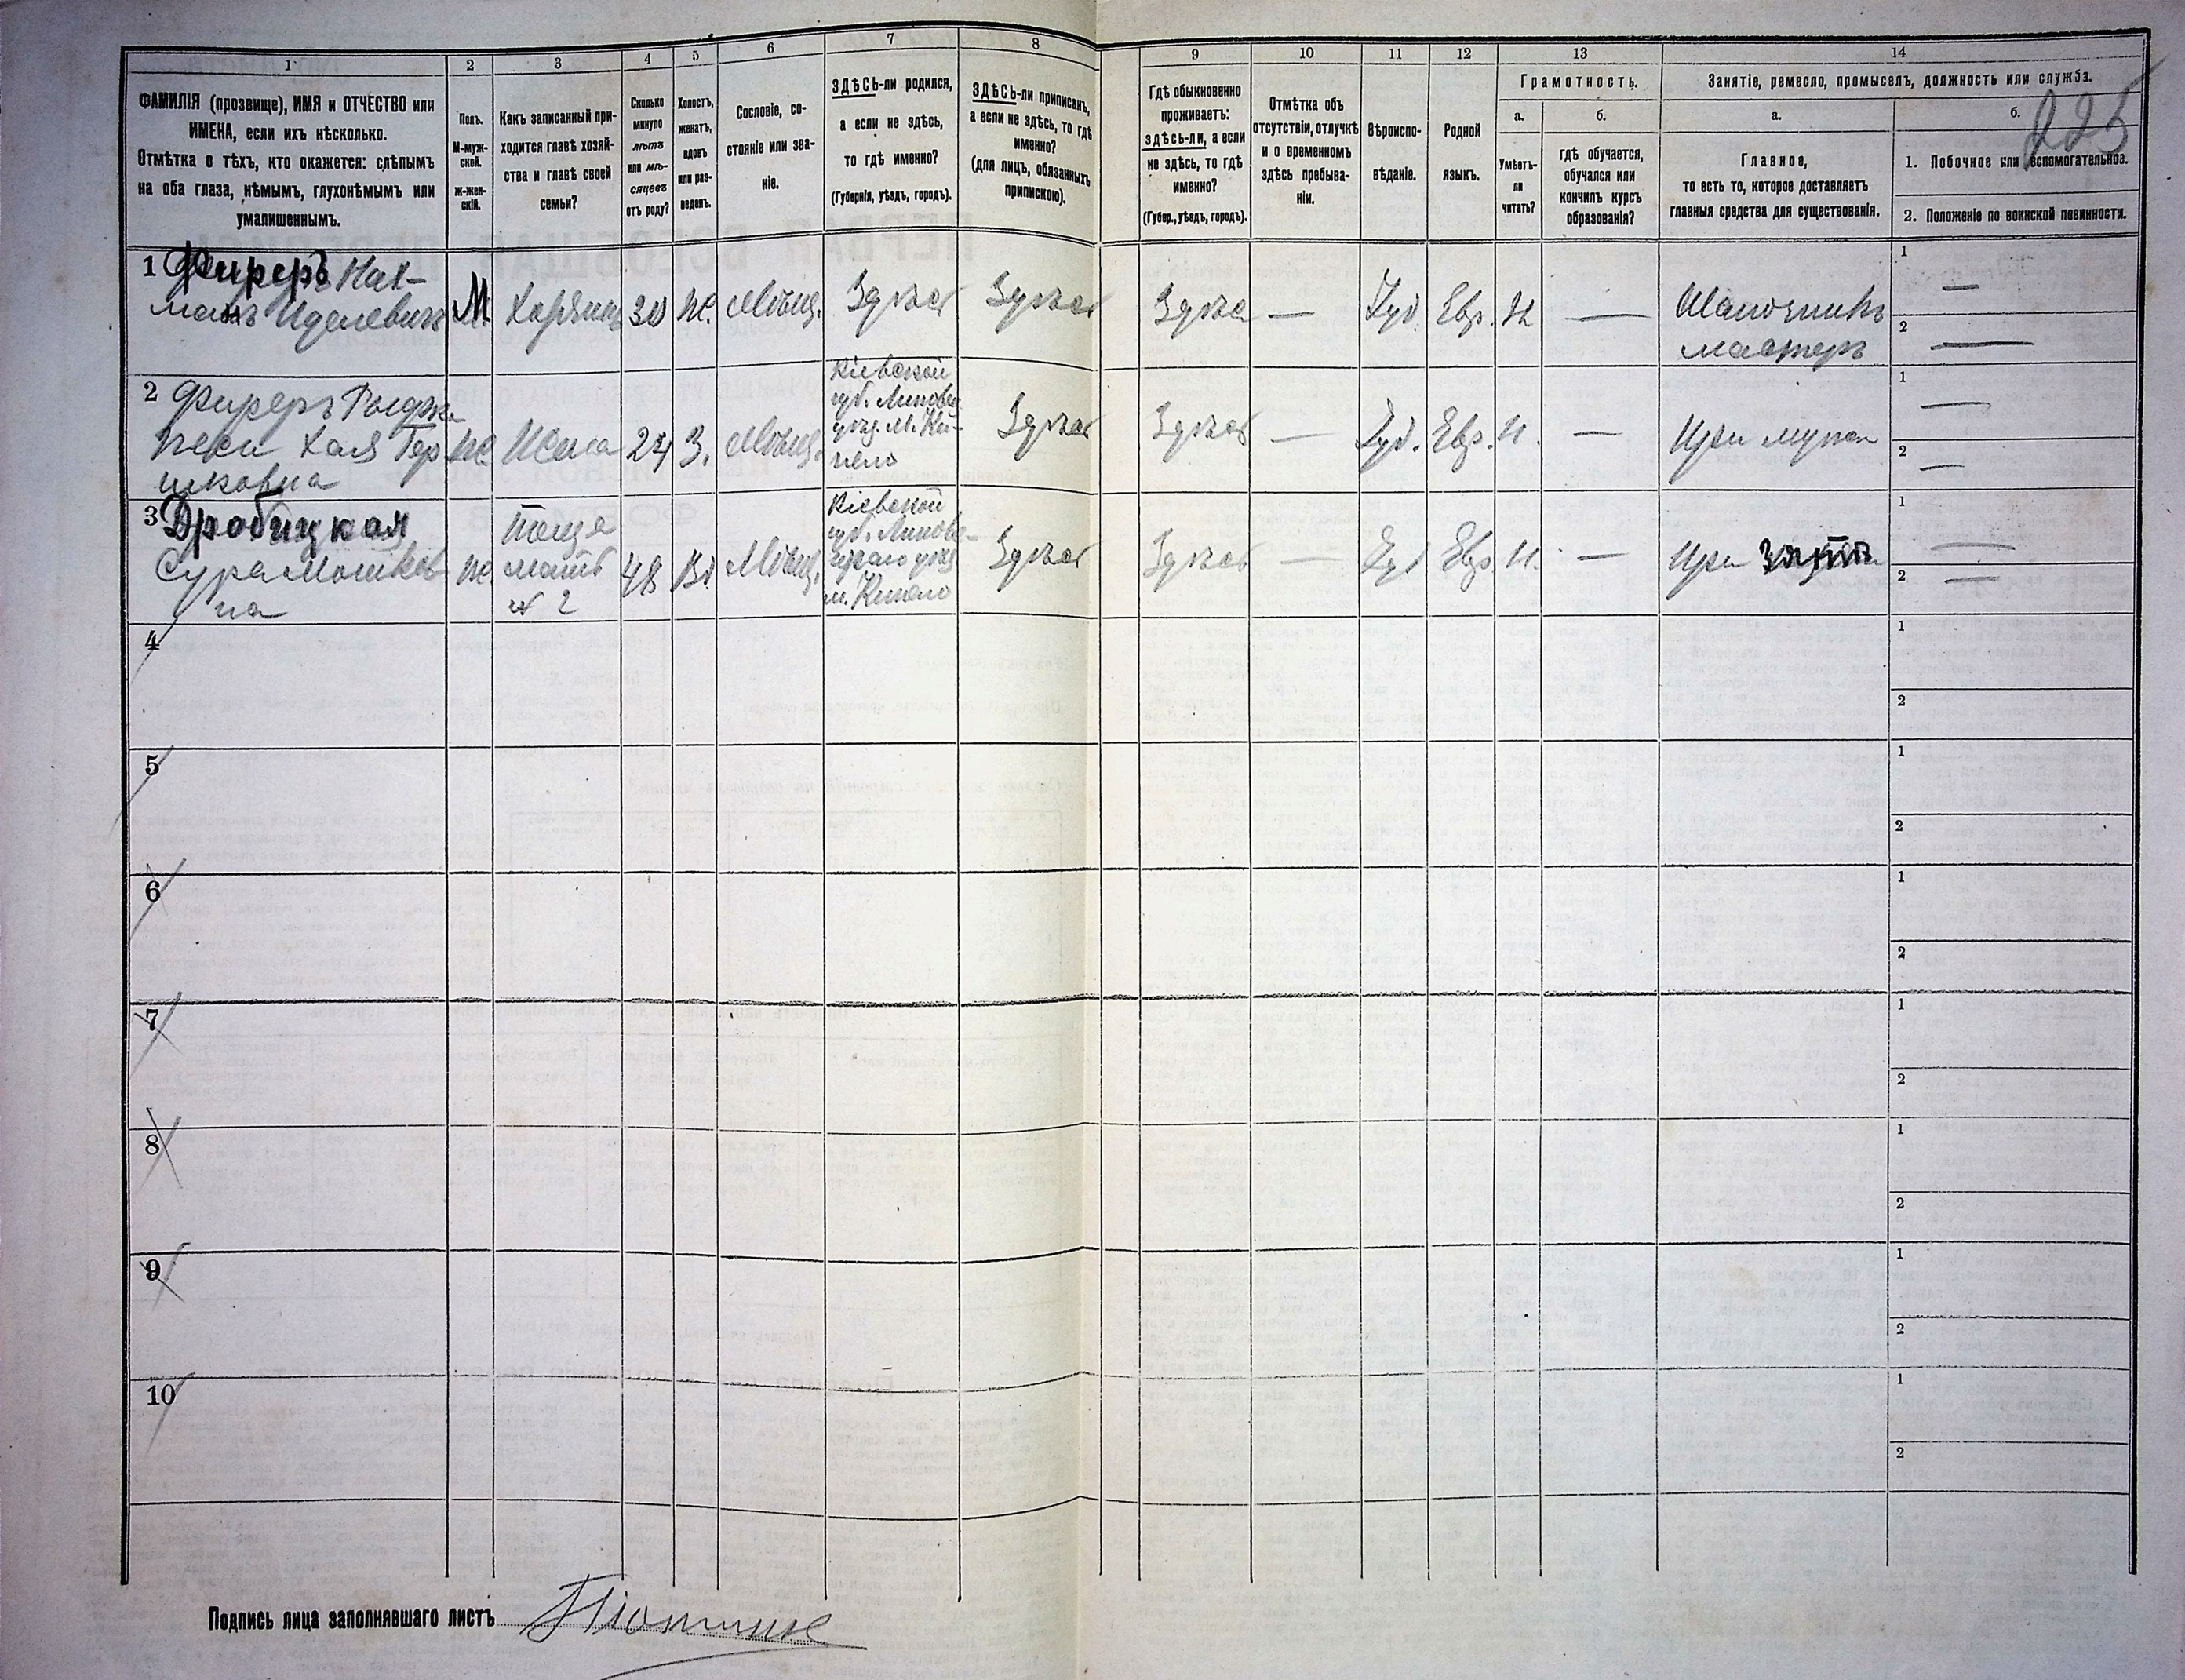 1
2
3
4
5
6
7
8
9
10
11
12
13
14
ФАМИЛІЯ (прозвище), ИМЯ и ОТЧЕСТВО или
ИМЕНА, если ихъ нѣсколько.
Отмѣтка о тѣхъ, кто окажется: слѣпымъ
на оба глаза, нѣмымъ, глухонѣмымъ или
умалишеннымъ.
Полъ.
М-муж-
ской.
ж-жен-
скій.
Какъ записанный при-
ходится главѣ хозяй-
ства и главѣ своей
семьи?
Сколько
минуло
лѣтъ
или мѣ-
сяцевъ
отъ роду?
Холостъ,
женатъ,
вдовъ
или раз-
веденъ.
Сословіе, со-
стояніе или зва-
ніе.
ЗДѢСЬ-ли родился,
а если не здѣсь,
то гдѣ именно?
(Губернія, уѣздъ, городъ).
ЗДѢСЬ-ли приписанъ,
а если не здѣсь, то гдѣ
именно?
(для лицъ, обязанныхъ
припискою).
Гдѣ обыкновенно
проживаетъ:
здѣсь-ли, а если
не здѣсь, то гдѣ
именно?
(Губер., уѣздъ, городъ).
Отмѣтка объ
отсутствіи, отлучкѣ
и о временномъ
здѣсь пребыва-
ніи.
Вѣроиспо-
вѣданіе.
Родной
языкъ.
Грамотность.
а.
Умѣетъ-
ли
читать?
б.
гдѣ обучается,
обучался или
кончилъ курсъ
образованія?
Занятіе, ремесло, промыселъ, должность или служба.
а.
Главное,
то есть то, которое доставляетъ
главныя средства для существованія.
б.
225
1. Побочное или вспомогательное.
2. Положеніе по воинской повинности.
1 Фиреръ Нах-
манъ Иделевичъ
М.
Хозяинъ
30
Ж.
Мѣщ.
Здѣсь
Здѣсь
Здѣсь
—
Іуд.
Евр.
Н
—
Шапочникъ
мастеръ
1 —
2 —
2 Фиреръ
Хая Гер
шковна
Ж
Жена
24
З.
Мѣщ.
Кіевской
губ. Липовец
уѣзд. М. Ки-
Здѣсь
Здѣсь
—
Іуд.
Евр.
Н.
—
При мужѣ
1 —
2 —
3 Дробицкая
Сура Мошков
на
Ж
Теща
мать
№ 2
48
Вд.
Мѣщ.
Кіевской
губ. Липове-
цкаго уѣзд
Здѣсь
Здѣсь
—
Іуд
Евр
Н.
—
При зятѣ
1 —
2 —
4
1
2
5
1
2
6
1
2
7
1
2
8
1
2
9
1
2
10
1
2
Подпись лица заполнявшаго листъ